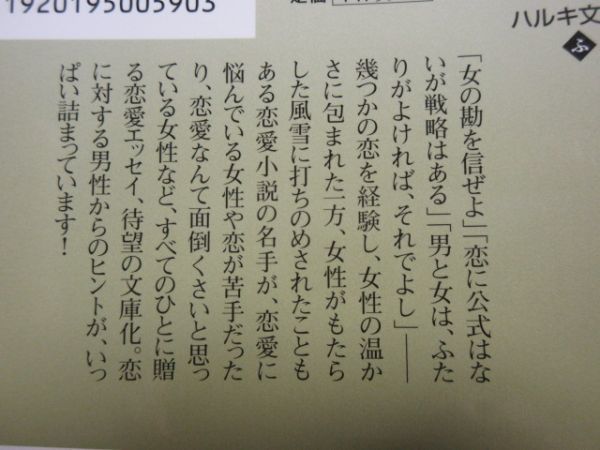 1920195005903
定価
ハルキ文
ふ
「女の勘を信ぜよ」「恋に公式はな
いが戦略はある」「男と女は、ふた
りがよければ、それでよし」――
幾つかの恋を経験し、女性の温か
さに包まれた一方、女性がもたら
した風雪に打ちのめされたことも
ある恋愛小説の名手が、恋愛に
悩んでいる女性や恋が苦手だった
り、恋愛なんて面倒くさいと思っ
ている女性など、すべてのひとに贈
る恋愛エッセイ、待望の文庫化。恋
に対する男性からのヒントが、いっ
ぱい詰まっています！